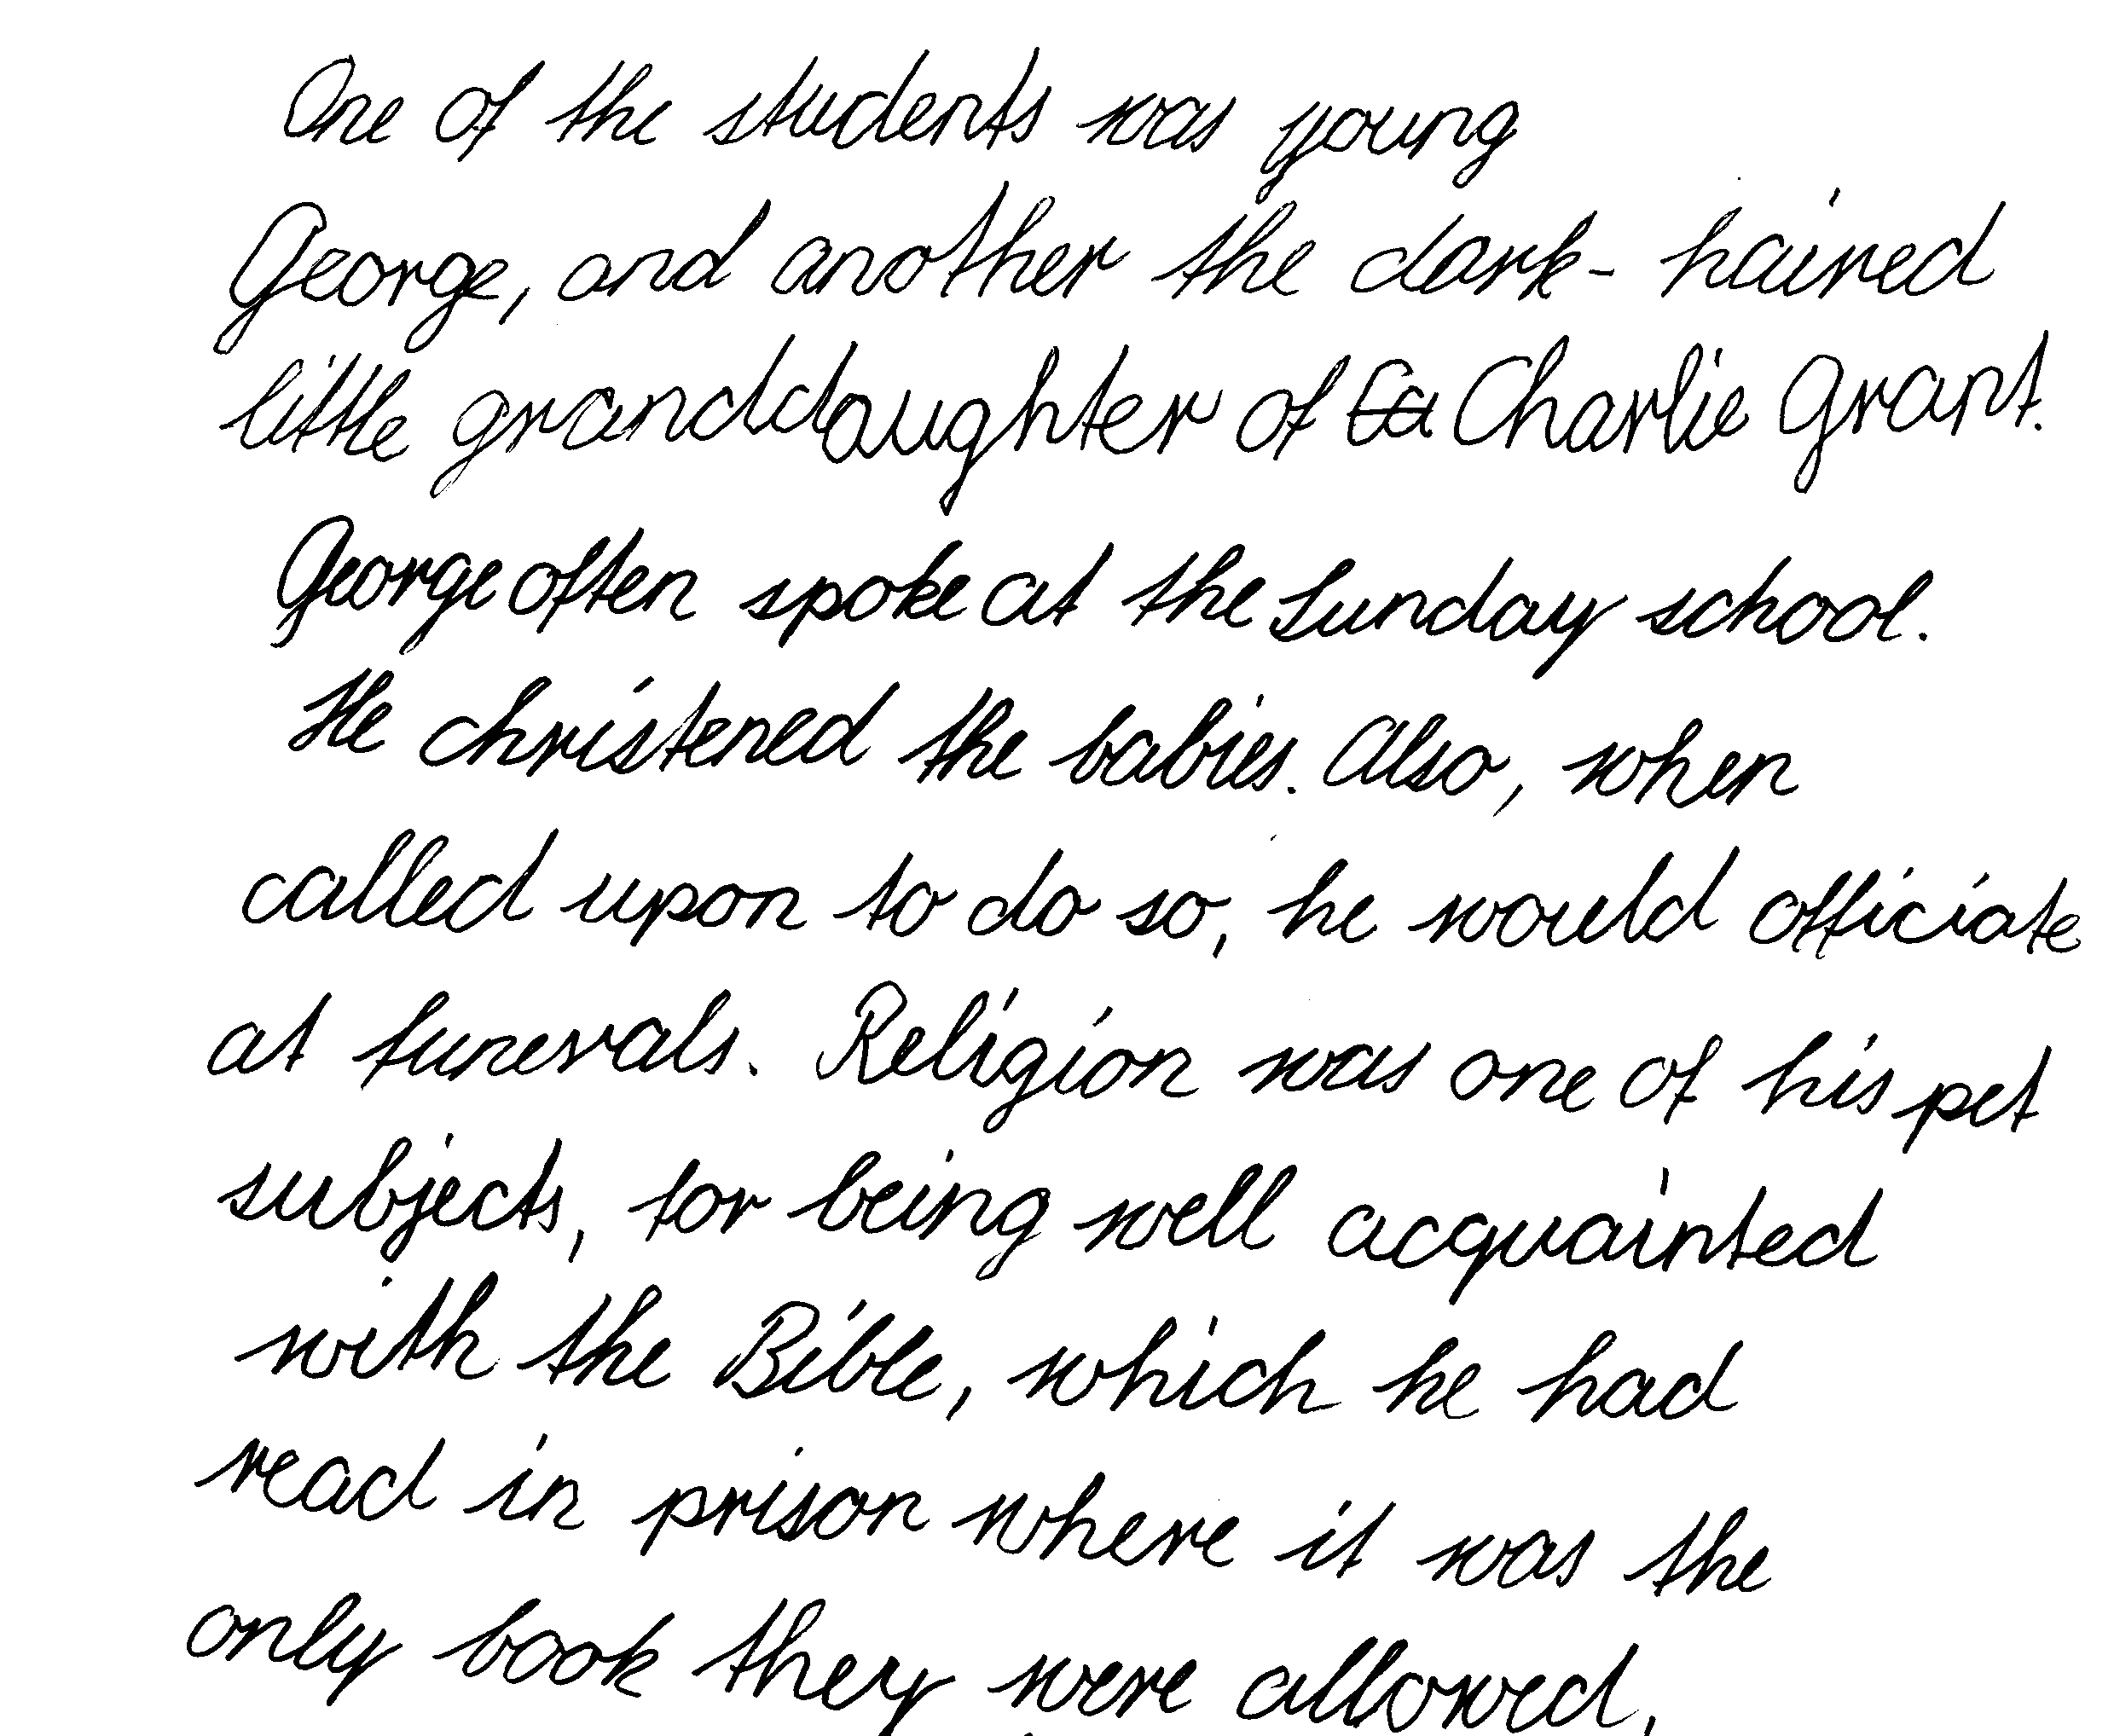 One of the students was young
George, and another the dark- haired
little granddaughter of Ca Charlie Grant.
George often spoke at the Sunday school.
He christened the babies. Also, when
called upon to do so, he would officiate
at funerals. Religion was one of his pet
subjects, for being well acquainted
with the Bible, which he had
read in prison where it was the
only book they were allowed,